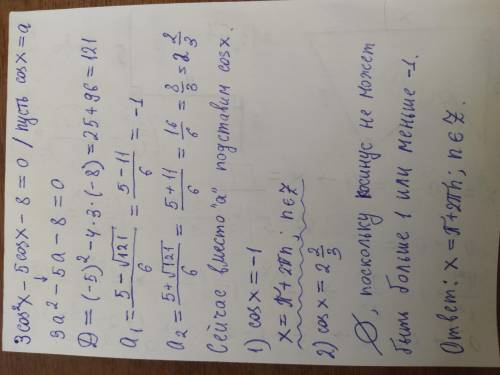 3cos²x - 5cosx - 8 = 0 / пусть cosx = a
3a² - 5a - 8 = 0
D = (-5)² - 4·3·(-8) = 25 + 96 = 121
a₁ = (5 - √121)/6 = (5 - 11)/6 = -1
a₂ = (5 + √121)/6 = (5 + 11)/6 = 16/6 = 8/3 = 2 2/3
Сейчас вместо "a" подставим cosx.
1) cosx = -1
x = π + 2πn; n ∈ Z
2) cosx = 2 2/3
∅, поскольку косинус не может
быть больше 1 или меньше -1.
Ответ: x = π + 2πn; n ∈ Z.